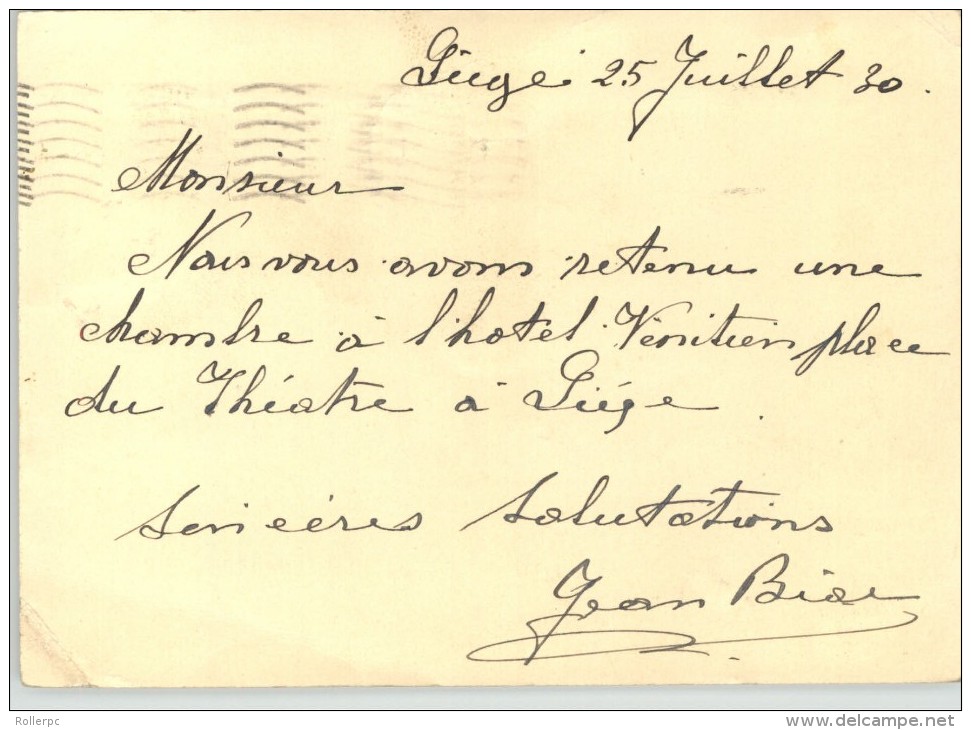 Liége 25 Juillet 30.
Monsieur
Nous vous avons retenu une
chambre à l'hotel Vénitien place
du Théatre à Liége.
sincéres salutations
Jean
Rollerpc
www.delcampe.net